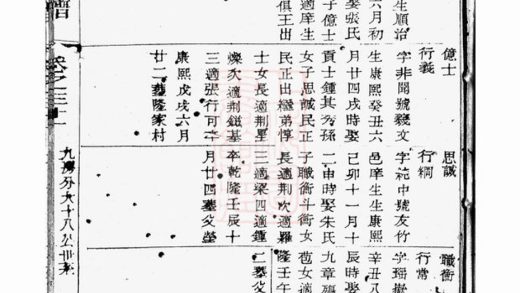 生順治
六月初
娶張氏
子億士
適庠生
俱王出
億士
行義
字非聞號毅文
生康熙癸丑六
月廿四戌時娶
貢士鍾其秀孫
女子思誠民正
民正出繼弟惇
士女長適荊星
燦次適荊鎡基
三適張行可卒
康熙戊戌六月
廿二葬隆家村
思誠
行綱
字純中號友竹
邑庠生生康熙
己卯十一月十
二申時娶朱氏
子職衝斗衝女
長適荊次適羅
三適梁四適鍾
卒乾隆壬辰十
月廿四葬父塋
職衝
行常
字瑤
辛丑八
辰時娶
九章孫
苞女適
隆壬午
二葬父
譜
卷之三十一
九房分大十八公世系